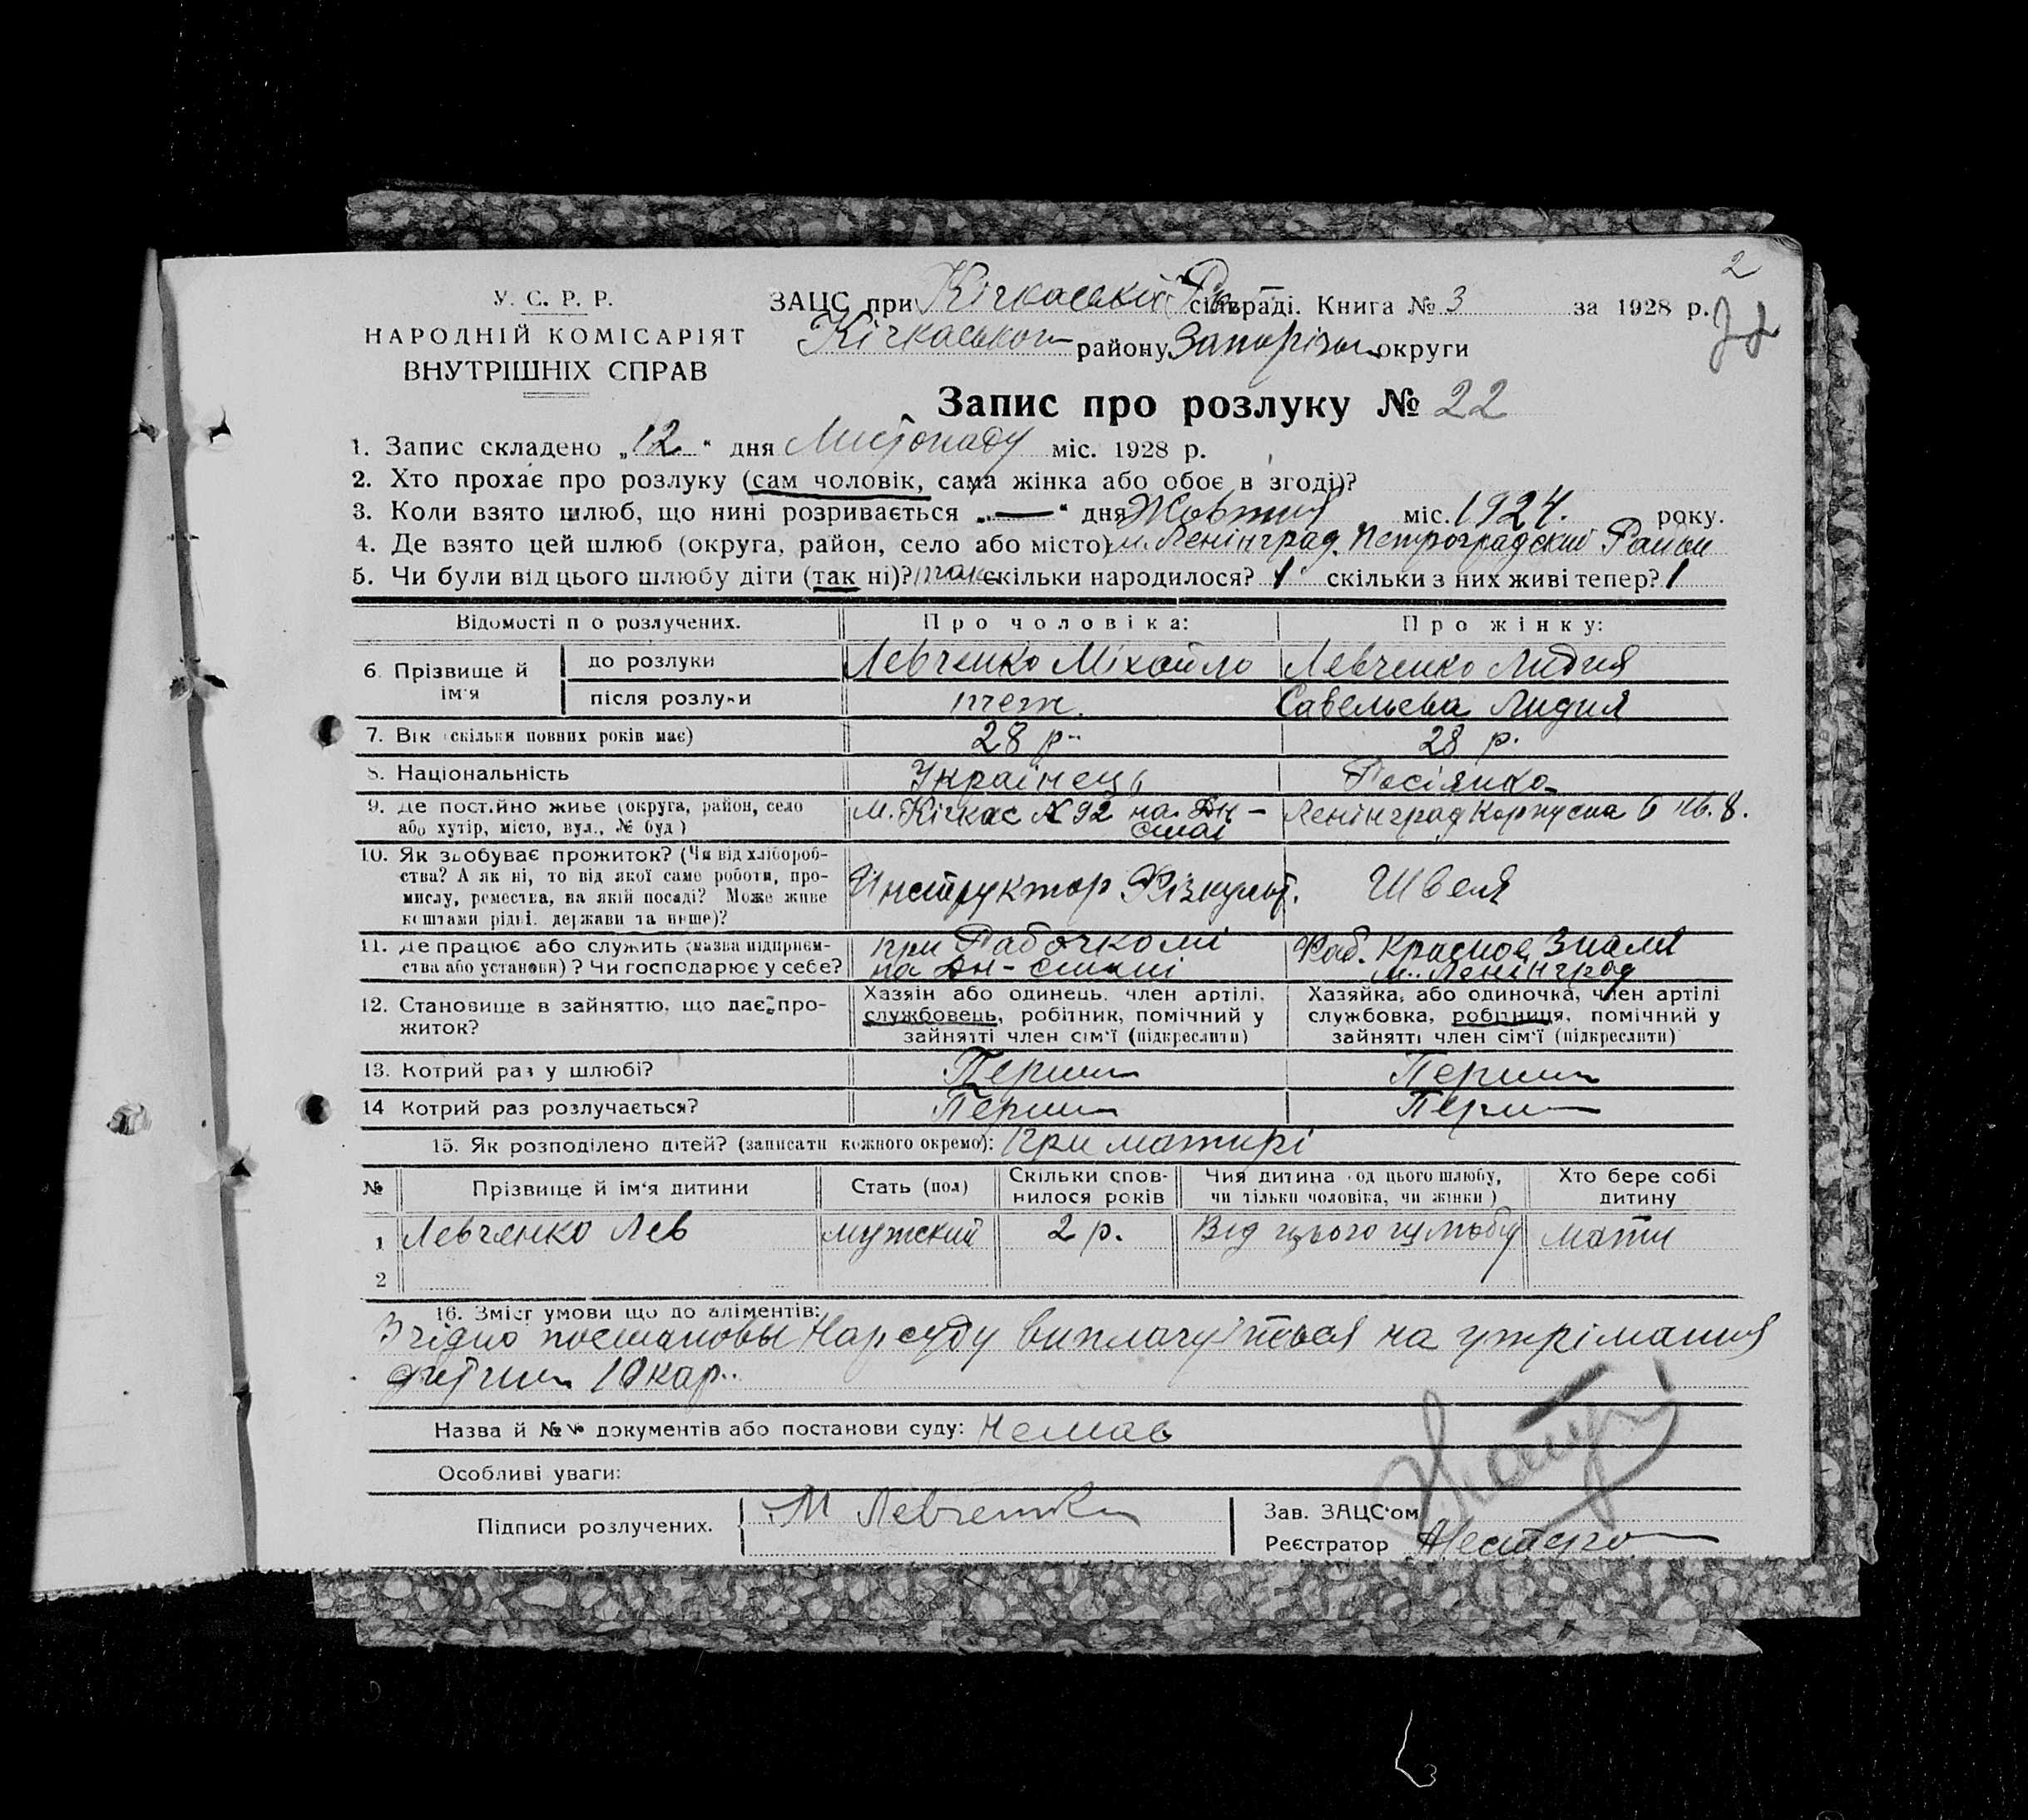 2
У. С. Р. Р.
НАРОДНІЙ КОМІСАРІЯТ
ВНУТРІШНІХ СПРАВ
ЗАЦС при Кічкаській сільраді. Книга № 3 за 1928 р.
Кічкаського району Запорізьк округи
Запис про розлуку № 22
1. Запис складено „12" дня Листопаду міс. 1928 р.
2. Хто прохає про розлуку (сам чоловік, сама жінка або обоє в згоді)?
3. Коли взято шлюб, що нині розривається „—" дня Жовтня міс. 1924. року.
4. Де взято цей шлюб (округа, район, село або місто) м. Ленінград. Петроградский Район
5. Чи були від цього шлюбу діти (так ні)? так скільки народилося? 1 скільки з них живі тепер? 1
Відомості по розлучених. Про чоловіка: Про жінку:
6. Прізвище й ім'я до розлуки Левченко Міхайло Левченко Лидия
після розлуки теж. Савельева Лидия
7. Вік (скільки повних років має) 28 р. 28 р.
8. Національність Українець Росіянка
9. Де постійно живе (округа, район, село або хутір, місто, вул., № буд) м. Кічкас № 92 на Дн-стаї Ленінград Корпусна 6 кв. 8.
10. Як здобуває прожиток? (Чи від хліборобства? А як ні, то від якої саме роботи, промислу, ремества, на якій посаді? Може живе коштами рідні, держави та инше)? Инструктор Фізкульт. Швея
11. Де працює або служить (назва підприємства або установи)? Чи господарює у себе? при Рабочкомі на Дн-стаї Фаб. Красное Знамя м. Ленінград
12. Становище в зайняттю, що дає прожиток? Хазяін або одинець, член артілі, службовець, робітник, помічний у зайнятті член сім'ї (підкреслити) Хазяйка, або одиночка, член артілі службовка, робітниця, помічний у зайнятті член сім'ї (підкреслити)
13. Котрий раз у шлюбі? Перши Перши
14 Котрий раз розлучається? Перши Перши
15. Як розподілено дітей? (записати кожного окремо): При матирі
№ Прізвище й ім'я дитини Стать (пол) Скільки сповнилося років Чия дитина (од цього шлюбу, чи тільки чоловіка, чи жінки) Хто бере собі дитину
1 Левченко Лев мужский 2 р. Від цього шлюбу мати
2
16. Зміст умови що до аліментів:
Згідно постановы Нарсуду виплачується на утрімання
дитини 10 кар..
Назва й №№ документів або постанови суду: Немає
Особливі уваги:
Підписи розлучених. М Левченко
Зав. ЗАЦС'ом
Реєстратор